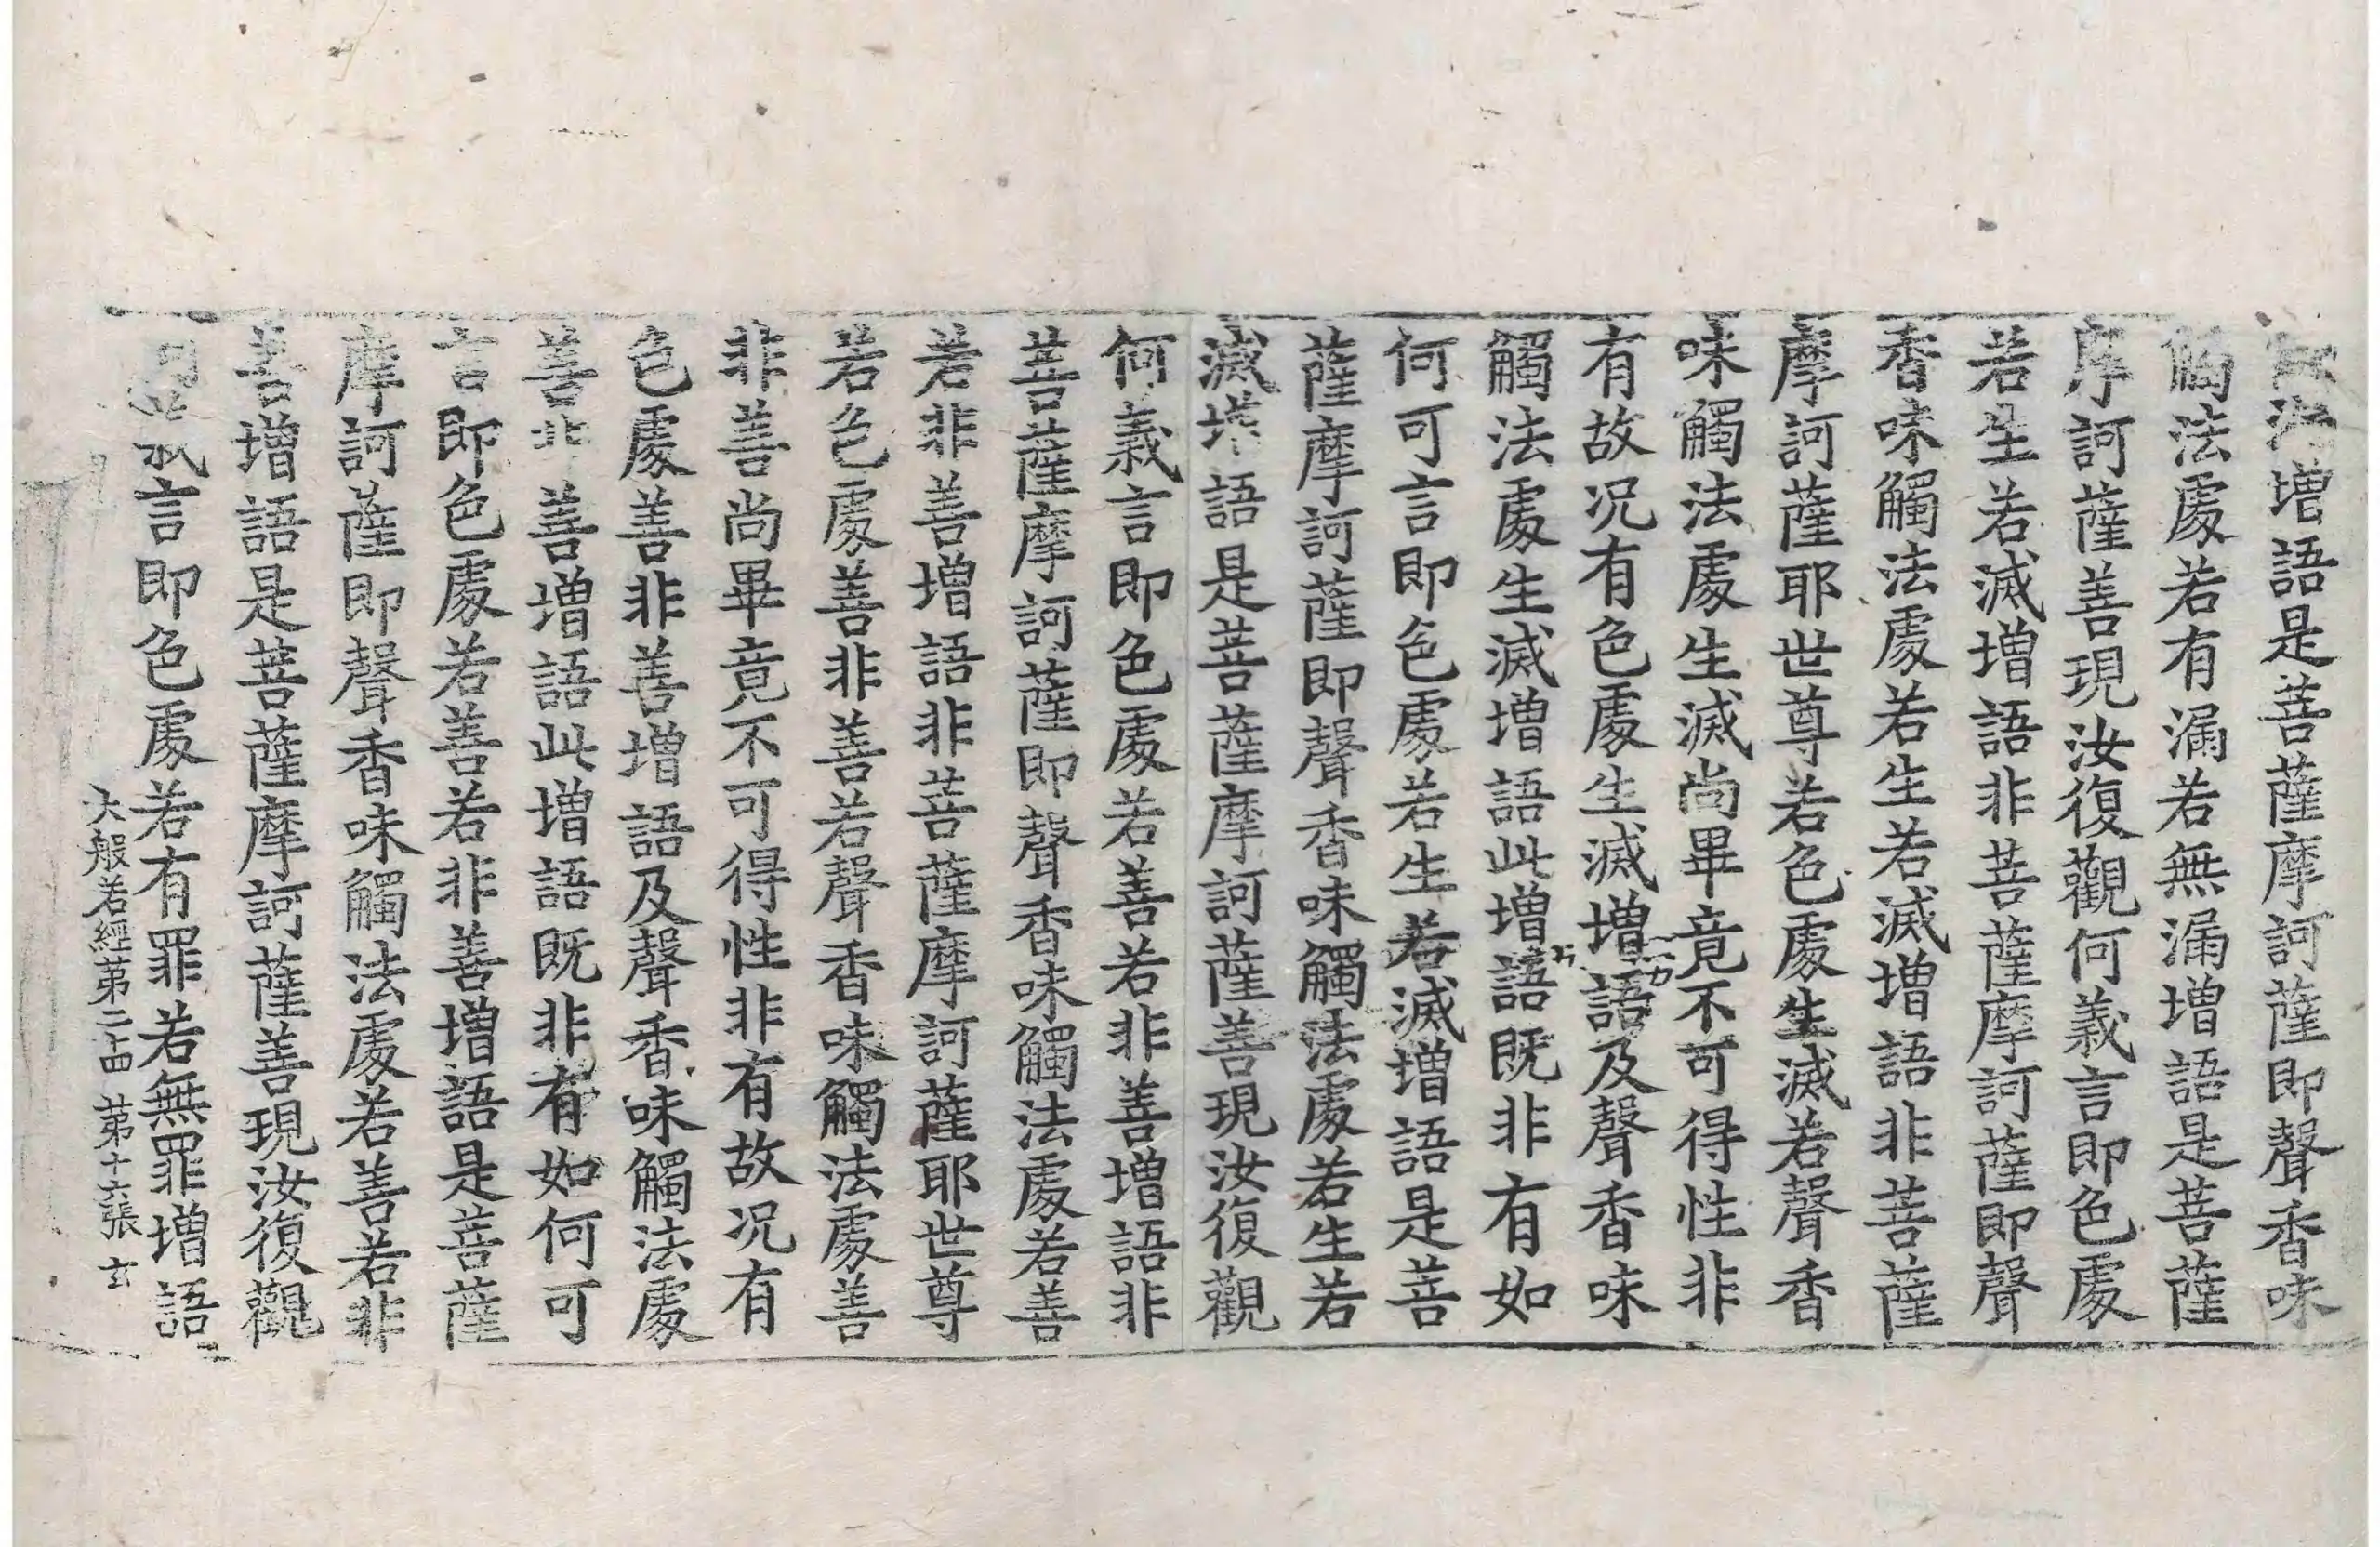 增語是菩薩摩訶薩即聲香味
觸法處若有漏若無漏增語是菩薩
摩訶薩善現汝復觀何義言即色處
若生若滅增語非菩薩摩訶薩即聲
香味觸法處若生若滅增語非菩薩
摩訶薩耶世尊若色處生滅若聲香
味觸法處生滅尚畢竟不可得性非
有故況有色處生滅增語及聲香味
觸法處生滅增語此增語既非有如
何可言即色處若生若滅增語是菩
薩摩訶薩即聲香味觸法處若生若
滅增語是菩薩摩訶薩善現汝復觀
何義言即色處若善若非善增語非
菩薩摩訶薩即聲香味觸法處若善
若非善增語非菩薩摩訶薩耶世尊
若色處善非善若聲香味觸法處善
非善尚畢竟不可得性非有故況有
色處善非善增語及聲香味觸法處
善非善增語此增語既非有如何可
言即色處若善若非善增語是菩薩
摩訶薩即聲香味觸法處若善若非
善增語是菩薩摩訶薩善現汝復觀
言即色處若有罪若無罪增語
大般若經第二十四 第十六張 玄